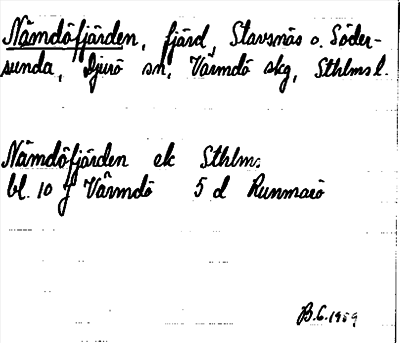 Nämdöfjärden, fjärd, Stavsnäs o. Söder-
sunda, Djurö sn, Värmdö skg, Sthlms l.
Nämdöfjärden ek Sthlm.
bl. 10 J Värmdö 5 d Runmarö
B.G. 1959